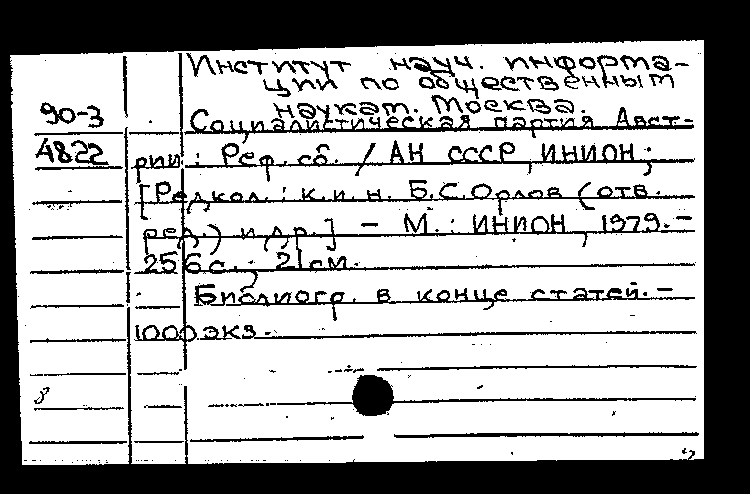 Институт науч. информа-
ции по общественным
наукам. Москва.
90-3 Социалистическая партия Авст-
4822 рии : Реф. сб. / АН СССР, ИНИОН ;
[Редкол.: к.и.н. Б.С.Орлов (отв.
ред.) и др.] - М. : ИНИОН, 1979. -
256 с. ; 21 см.
Библиогр. в конце статей. -
1000 экз.
8